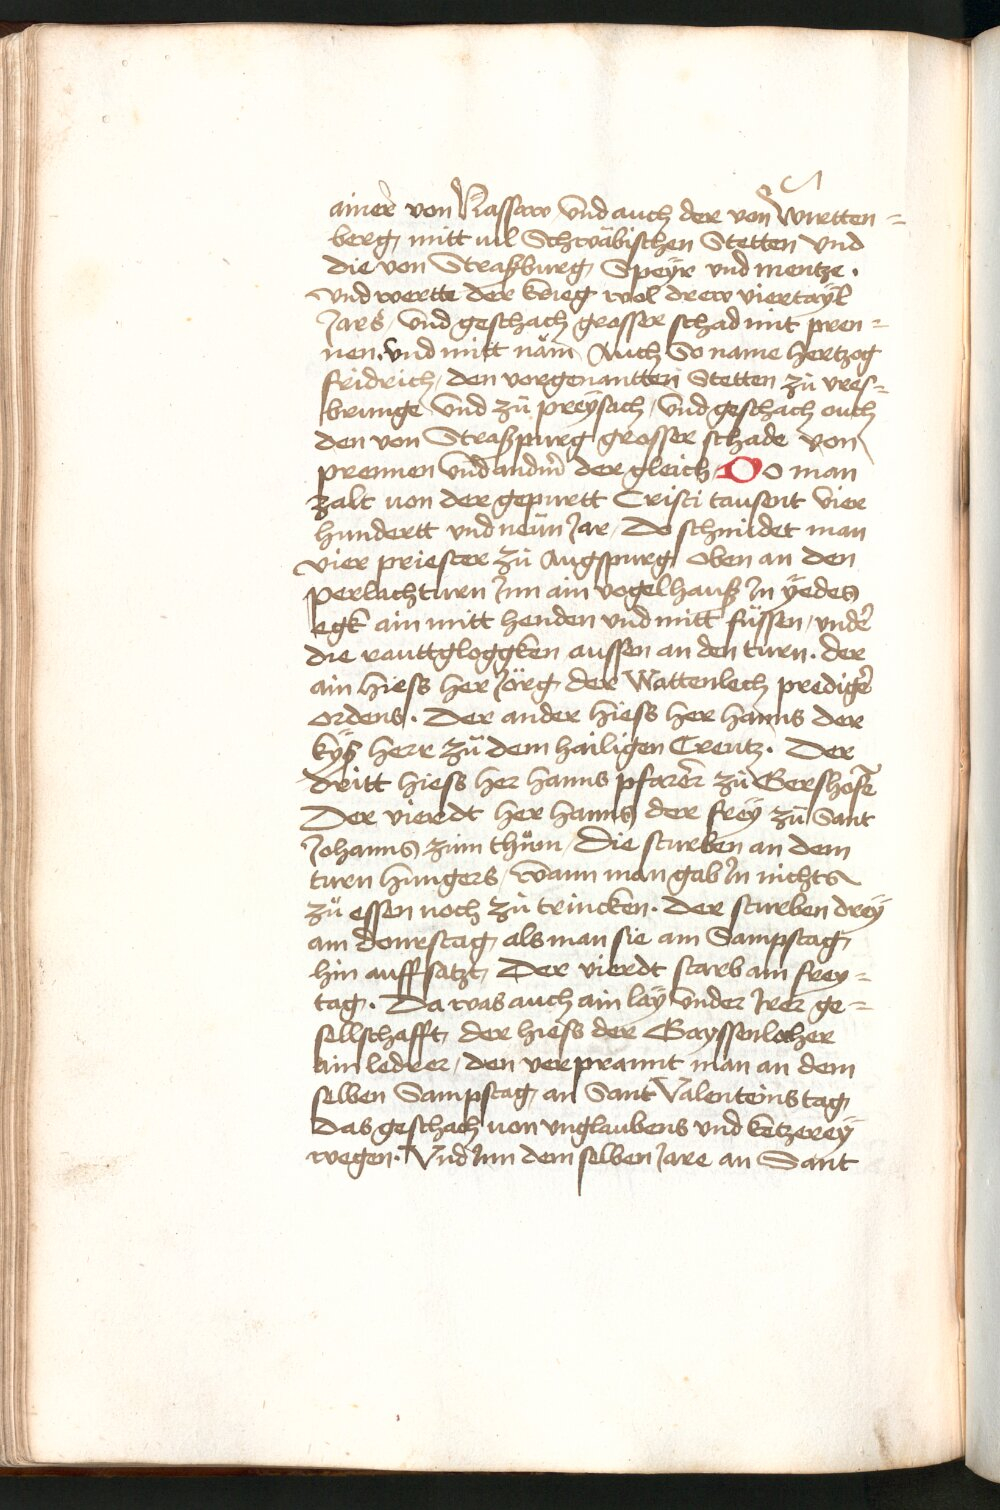 ainer von Nassaw vnd auch der von Wirtten=
berg mitt vil Schwäbischen Stetten vnd
die von Straßburg Speyr vnd mentze.
vnd wertte der krieg wol drew viertayl
Jars, vnd geschach grosser schad mit pren=
nen. vnd mitt näm Auch so name hertzog
fridrich, den vorgenantten Stetten zů vres=
brunge vnd zů preÿsach, vnd geschach ouch
den von Straßpurg grosser schade von
prennen vnd andrm̃ der gleich. Do man
zalt von der gepurtt Cristi tausent vier
hundertt vnd neün Jar, Do schmidet man
vier priester zů Augspurg oben an den
perlachturn Inn ain vogelhauß In ÿedes
egk ain mitt henden vnd mitt füssen, vnder
die rauttgloggken aussen an den turn. der
ain hiess her Jörg der Wattenlech prediger
ordens. Der ander hiess her hanns der
kÿß herr zů dem hailigen Creutz. Der
dritt hiess her hanns pfarrer zů Gershofen
Der vierdt her hanns der freÿ zů Sant
Johanns zům thům, Die sturben an dem
turn hungers, wann man gab In nichts
zů essen noch zů trincken. Der sturben dreÿ
am donrstag als man sie am Sampstag
hin auff satzt, Der vierdt starb am freÿ=
tag. Da was auch ain laÿ vnder Irer ge=
sellschafft, der hiess der Gayssenlocher
ain ledrer, den verprannt man an dem
selben Sampstag an Sant Valenteins tag
Das geschach von vnglaubens vnd ketzereÿ
wegen. Vnd Inn dem selben Jare an Sant